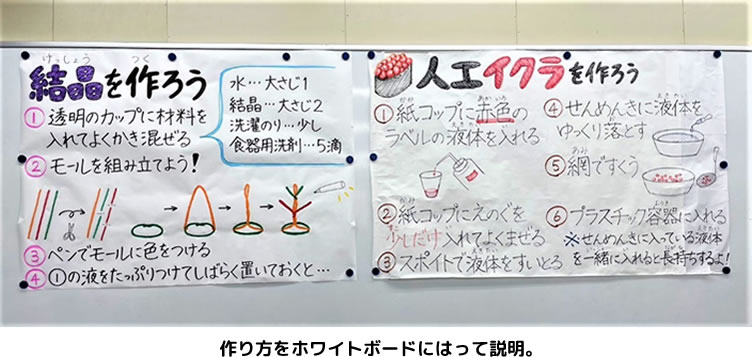 けっしょう つく
結晶を作ろう
① 透明のカップに材料を
入れてよくかき混ぜる
水…大さじ1
結晶…大さじ2
洗濯のり…少し
食器用洗剤…5滴
② モールを組み立てよう！
③ ペンでモールに色をつける
④ ①の液をたっぷりつけてしばらく置いておくと…
人工イクラを作ろう
① 紙コップに赤色の
ラベルの液体を入れる
② 紙コップにえのぐを
少しだけ入れてよくまぜる
③ スポイトで液体をすいとる
④ せんめんきに液体を
ゆっくり落とす
⑤ 網ですくう
⑥ プラスチック容器に入れる
※せんめんきに入っている液体
を一緒に入れると長持ちするよ！
作り方をホワイトボードにはって説明。